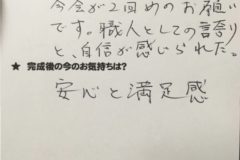 今会が2回めのお願い
です。職人としての誇り
と、自信が感じられた。
★ 完成後の今のお気持ちは?
安心と満足感